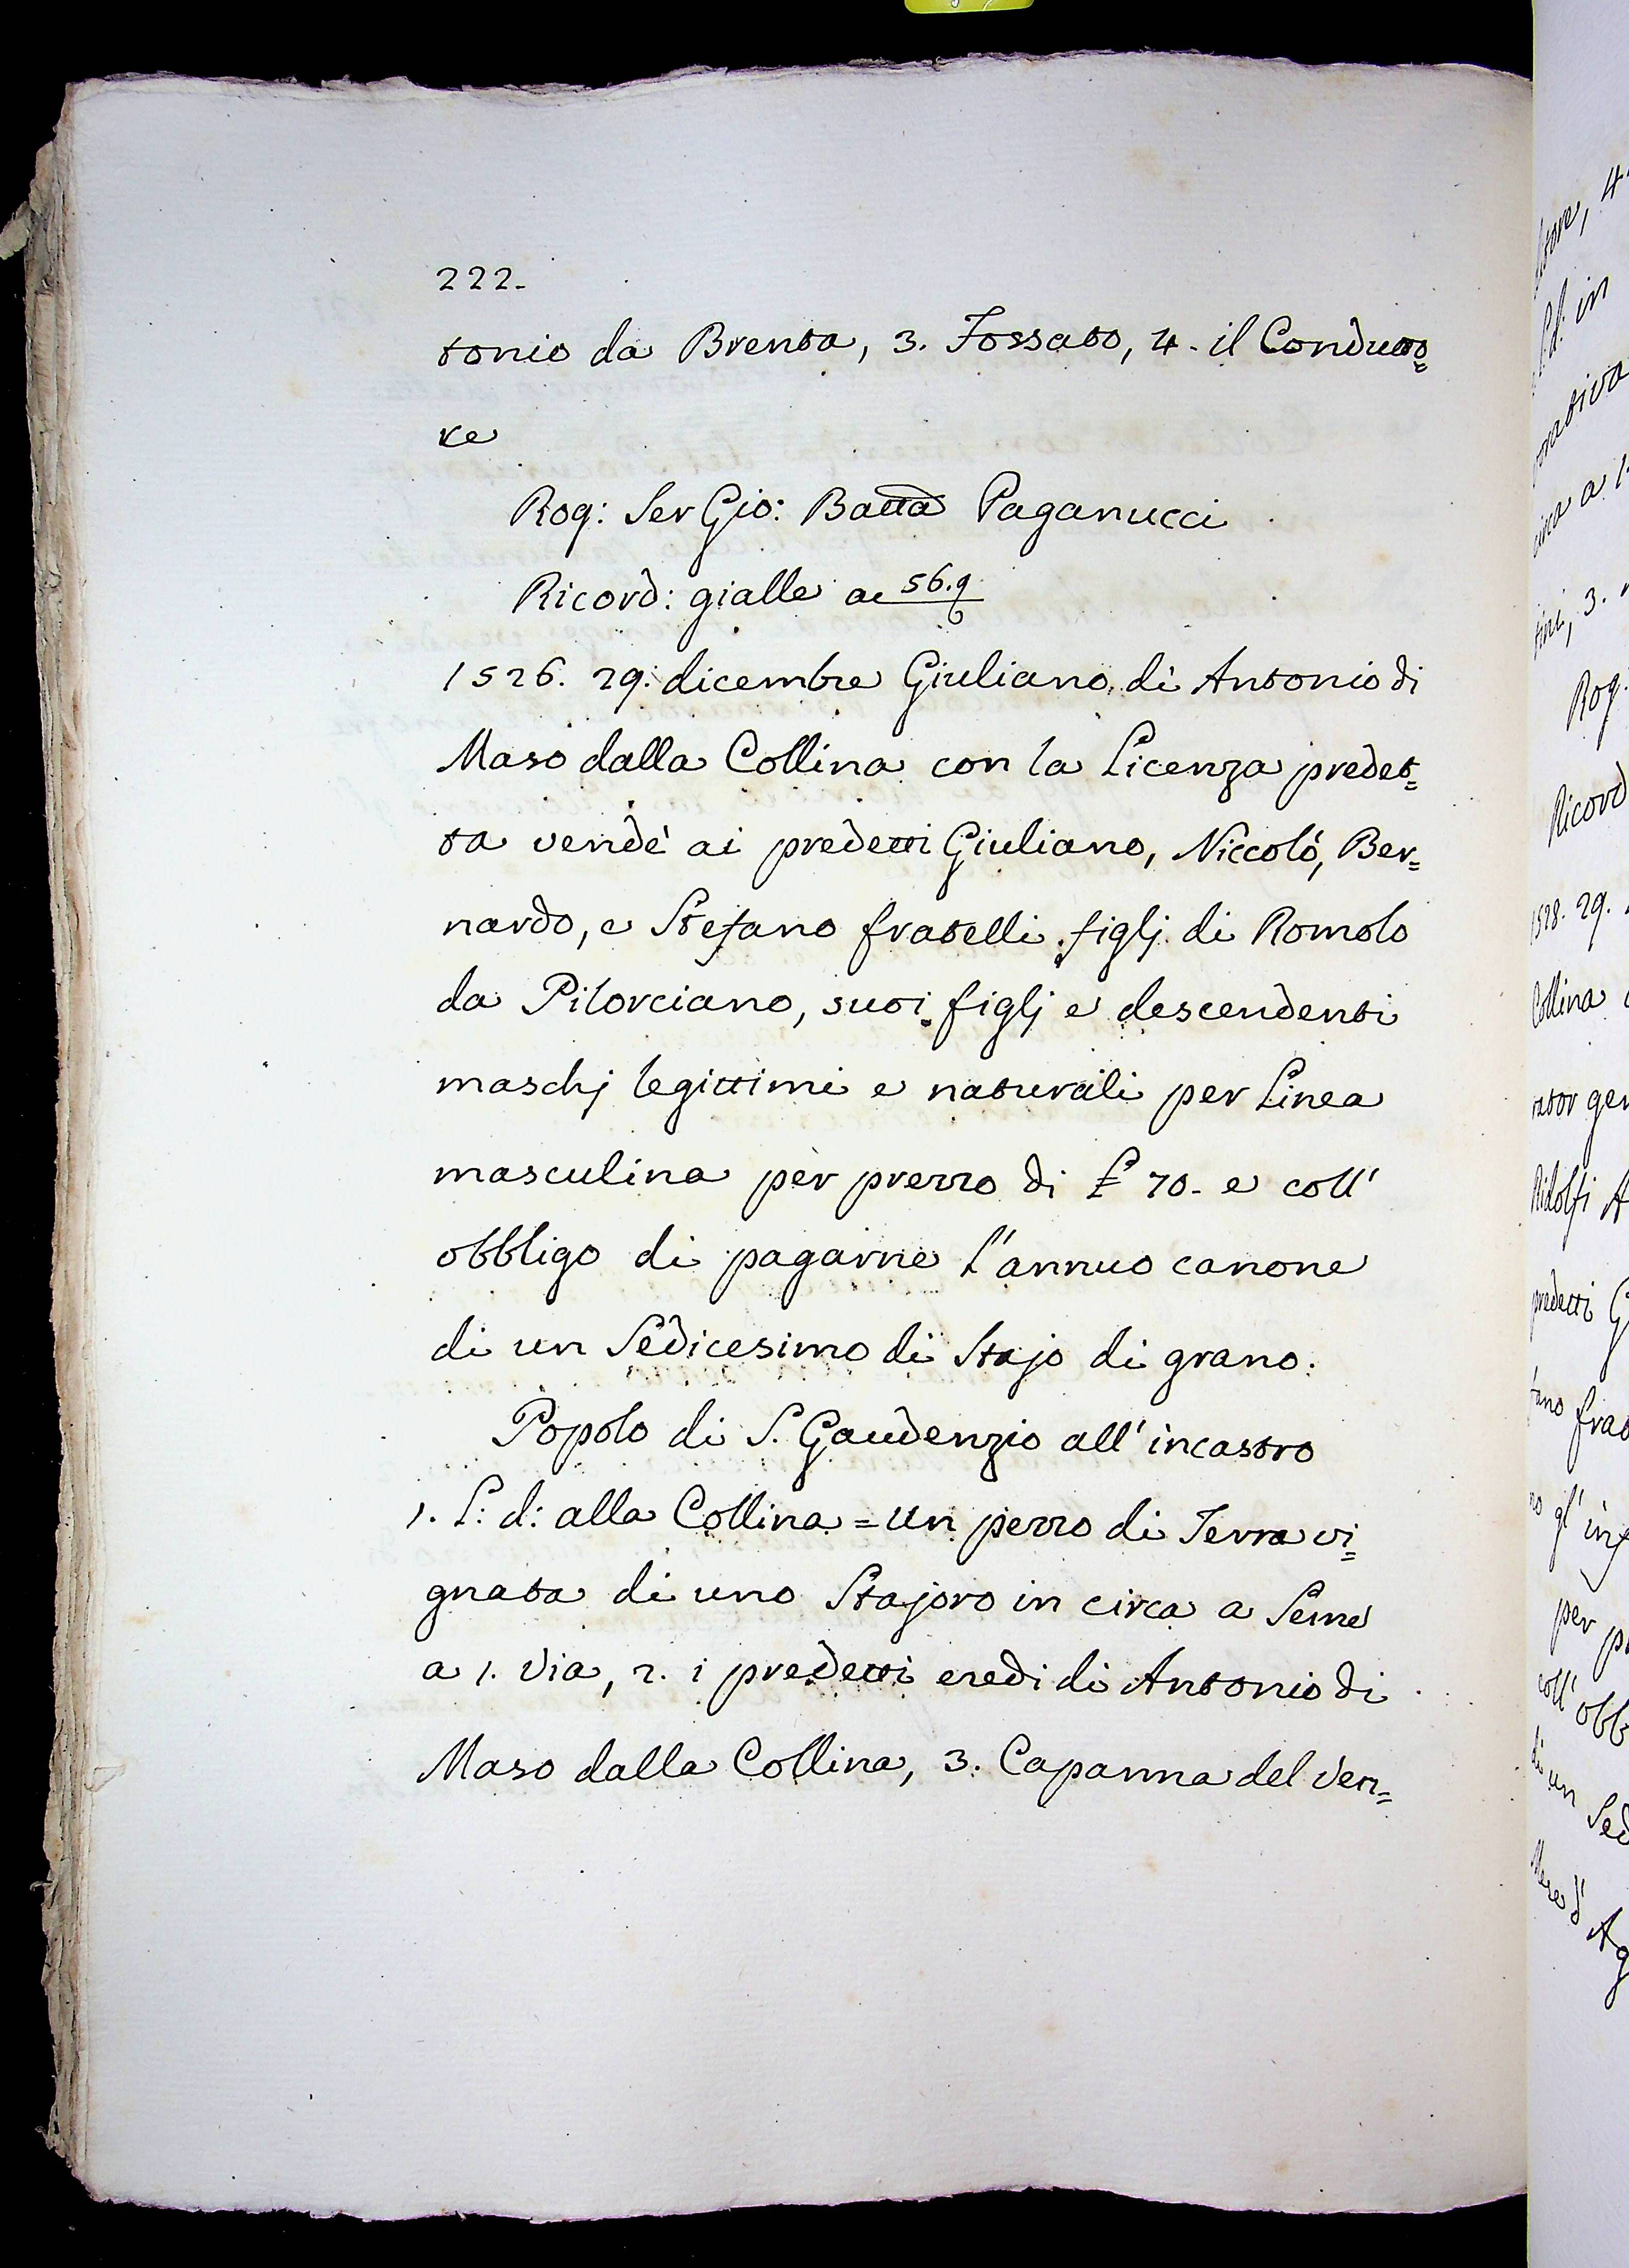 222.
tonio da Brenta, 3. Fossato, 4. il Condutto=
re
Rog: Ser Gio: Batta Paganucci
Ricord: gialle a 56.
1526. 29. dicembre Giuliano di Antonio di
Maso dalla Collina con la Licenza predet=
ta vendè ai predetti Giuliano, Niccolò, Ber=
nardo, e Stefano fratelli figlj di Romolo
da Pilorciano, suoi figlj e descendenti
maschj legittimi e naturali per Linea
masculina per prezzo di £ 70. e coll'
obbligo di pagarne l'annuo canone
di un Sedicesimo di Stajo di grano.
Popolo di S. Gaudenzio all' incastro
1. L: d: alla Collina = Un pezzo di Terra vi=
gnata di uno Stajoro in circa a Seme
a 1. Via, 2. i predetti eredi di Antonio di
Maso dalla Collina, 3. Capanna del Ven=
4.
L:d: in
Rog.
Ricord
1528. 29.
Collina
Ridolfi A
predetti G
per
coll' obb
di un Sed